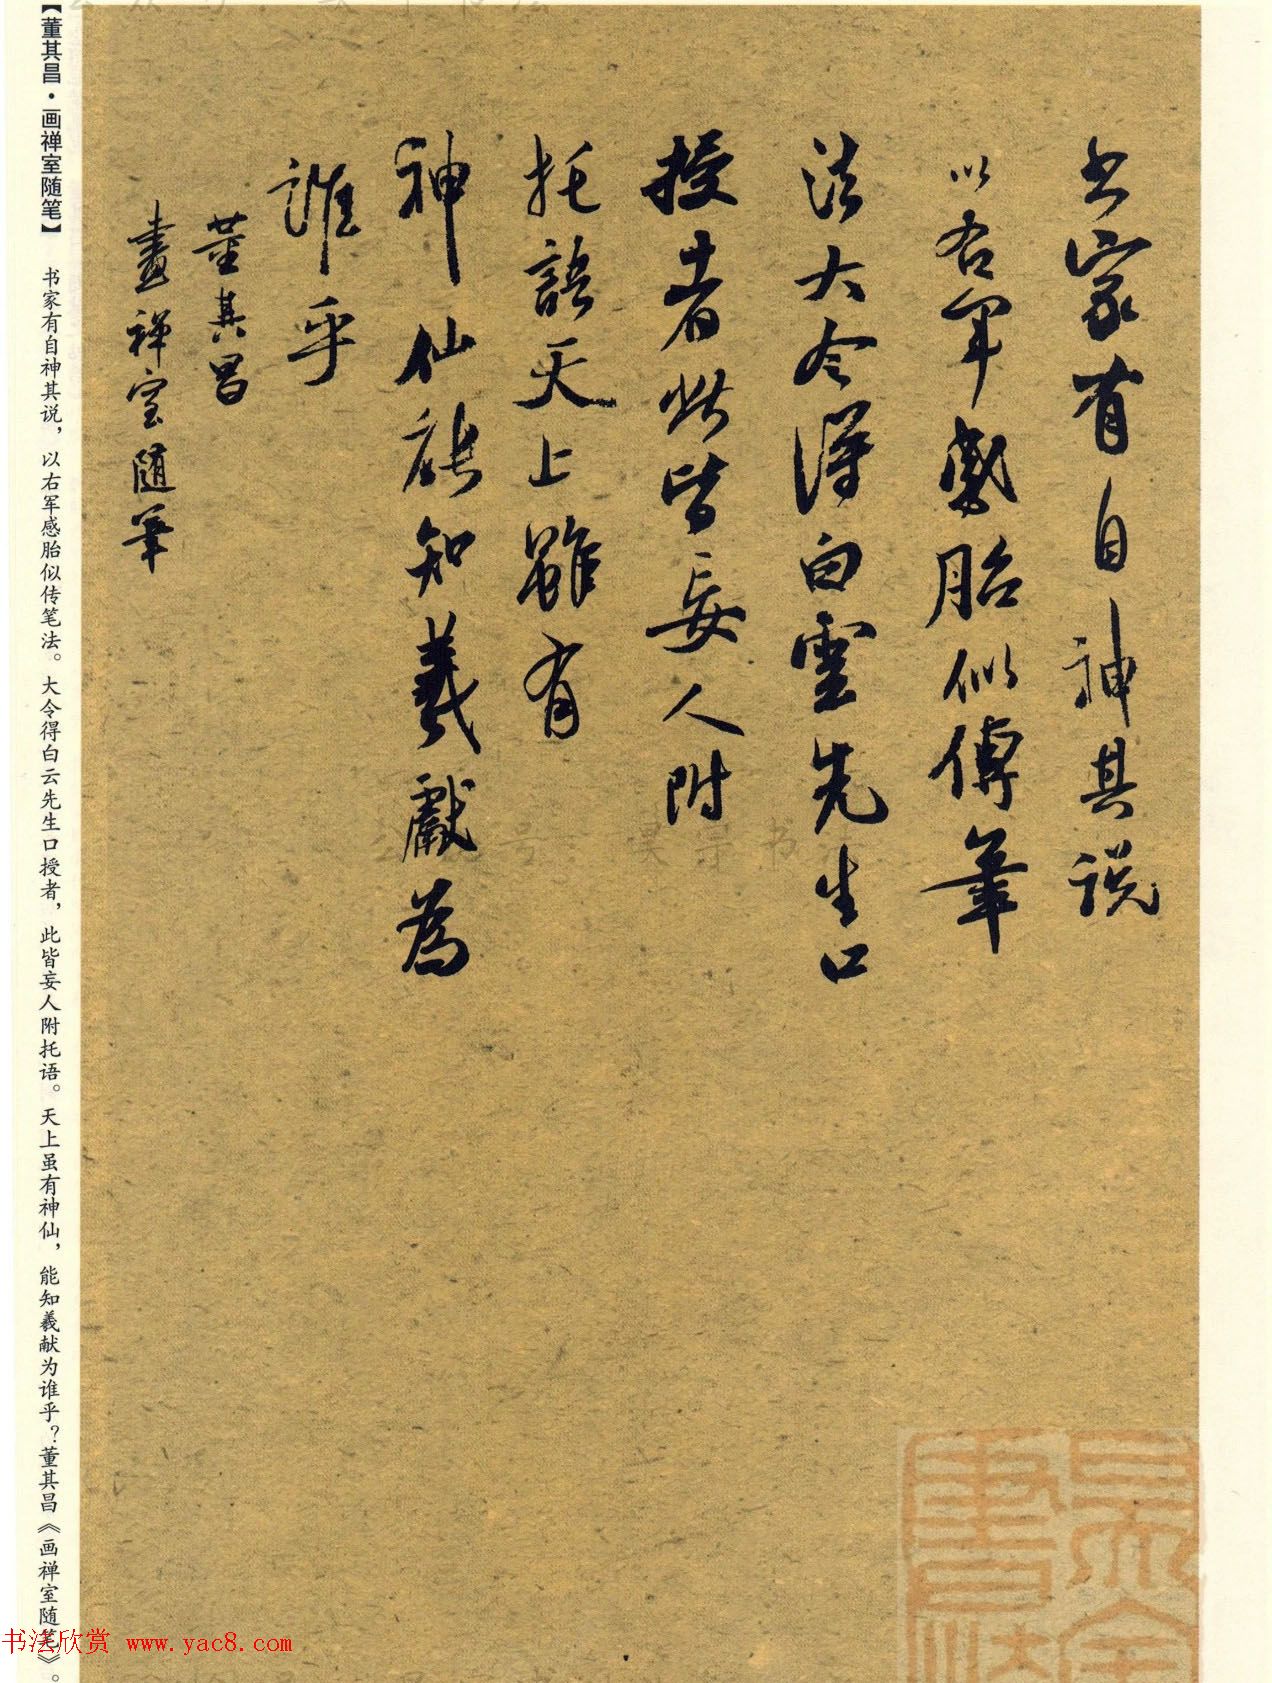 书家有自神其説
以右軍感胎似傳筆
法大令得白雲先生口
授者此皆妄人附
托語天上雖有
神仙能知羲獻為
誰乎
董其昌
畫禪室随筆
【董其昌·画禅室随笔】 书家有自神其说，以右军感胎似传笔法。大令得白云先生口授者，此皆妄人附托语。天上虽有神仙，能知羲献为谁乎？董其昌《画禅室随笔》。
书法欣赏 www.yac8.com